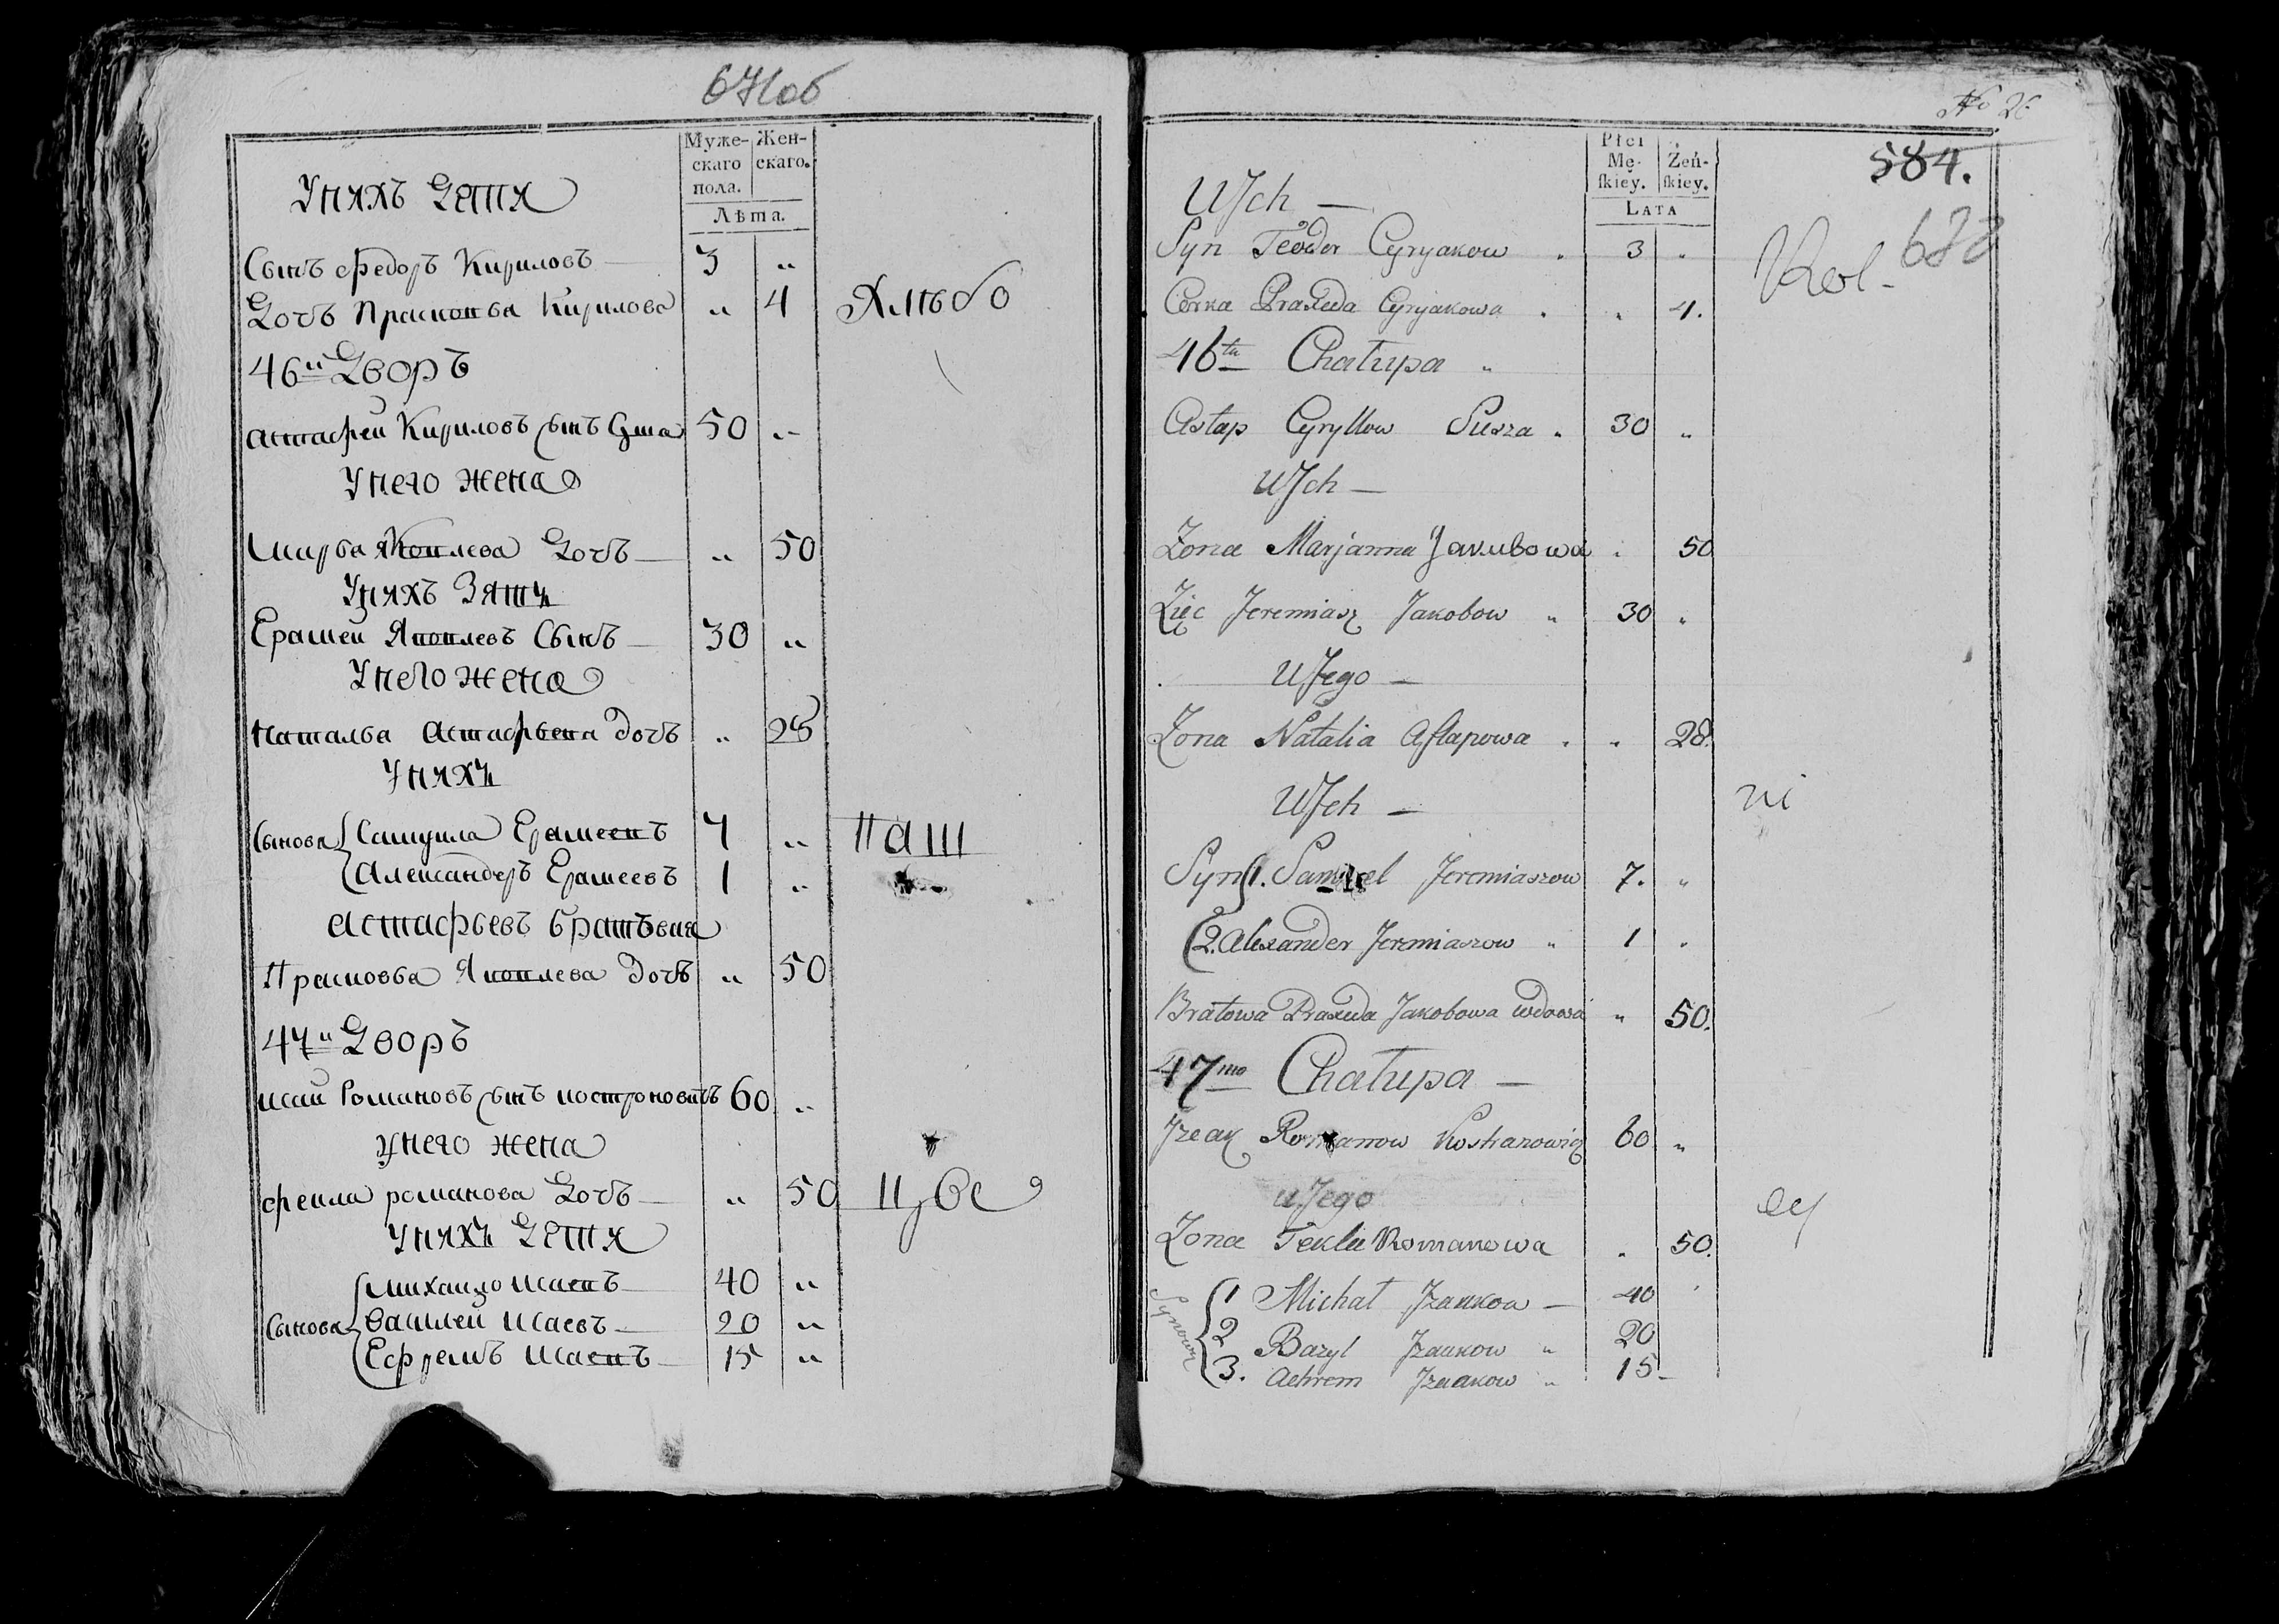 671об
Муже-
скаго
пола.
Жен-
скаго.
Лѣта.
Унихъ Дети
Сынъ Федоръ Кириловъ 3 "
Дочь Прасковья Кирилова " 4
46й Дворъ
Астафей Кириловъ сынъ 50 "
Унего жена
Марья Яковлева Дочь " 50
Унихъ Зять
Ерамей Яковлевъ Сынъ 30 "
Унего жена
Наталья Астафьева дочь " 28
Унихъ
Сынова Самуила Ерамеевъ 7 "
Александеръ Ерамеевъ 1 "
Астафьевъ братовая
Прасковья Яковлева дочь " 50
47й Дворъ
Исай Романовъ сынъ 60 "
Унего жена
Фекла Романова Дочь " 50
Унихъ Дети
Михайло Исаевъ 40 "
Сынова Василей Исаевъ 20 "
Ефремъ Исаевъ 15 "
№ 26
584.
Płci
Mę-
ſkiey.
Żeń-
ſkiey.
LATA
UJch —
Syn Teodor Cyryakow . 3 "
Corka Praxeda Cyryakowa . " 4.
46ta Chałupa "
Astap Cyryllow Susza . 30 "
UJch —
Zona Marjanna Jakubowa . 50
Zięc Jeremiasz Jakobow " 30 "
UJego —
Zona Natalia Aſtapowa . " 28.
UJch —
Syn 1. Samuel Jeremiaszow 7. "
2. Alexander Jeremiaszow " 1 "
Bratowa Praxeda Jakobowa wdowa " 50.
47mo Chałupa —
Jzaak Romanow 60 "
uJego
Zona Tekla Romanowa . 50.
Synowie 1 Michał Jzaakow — 40
2 Bazyl Jzaakow " 20
3. Achrem Jzaakow " 15